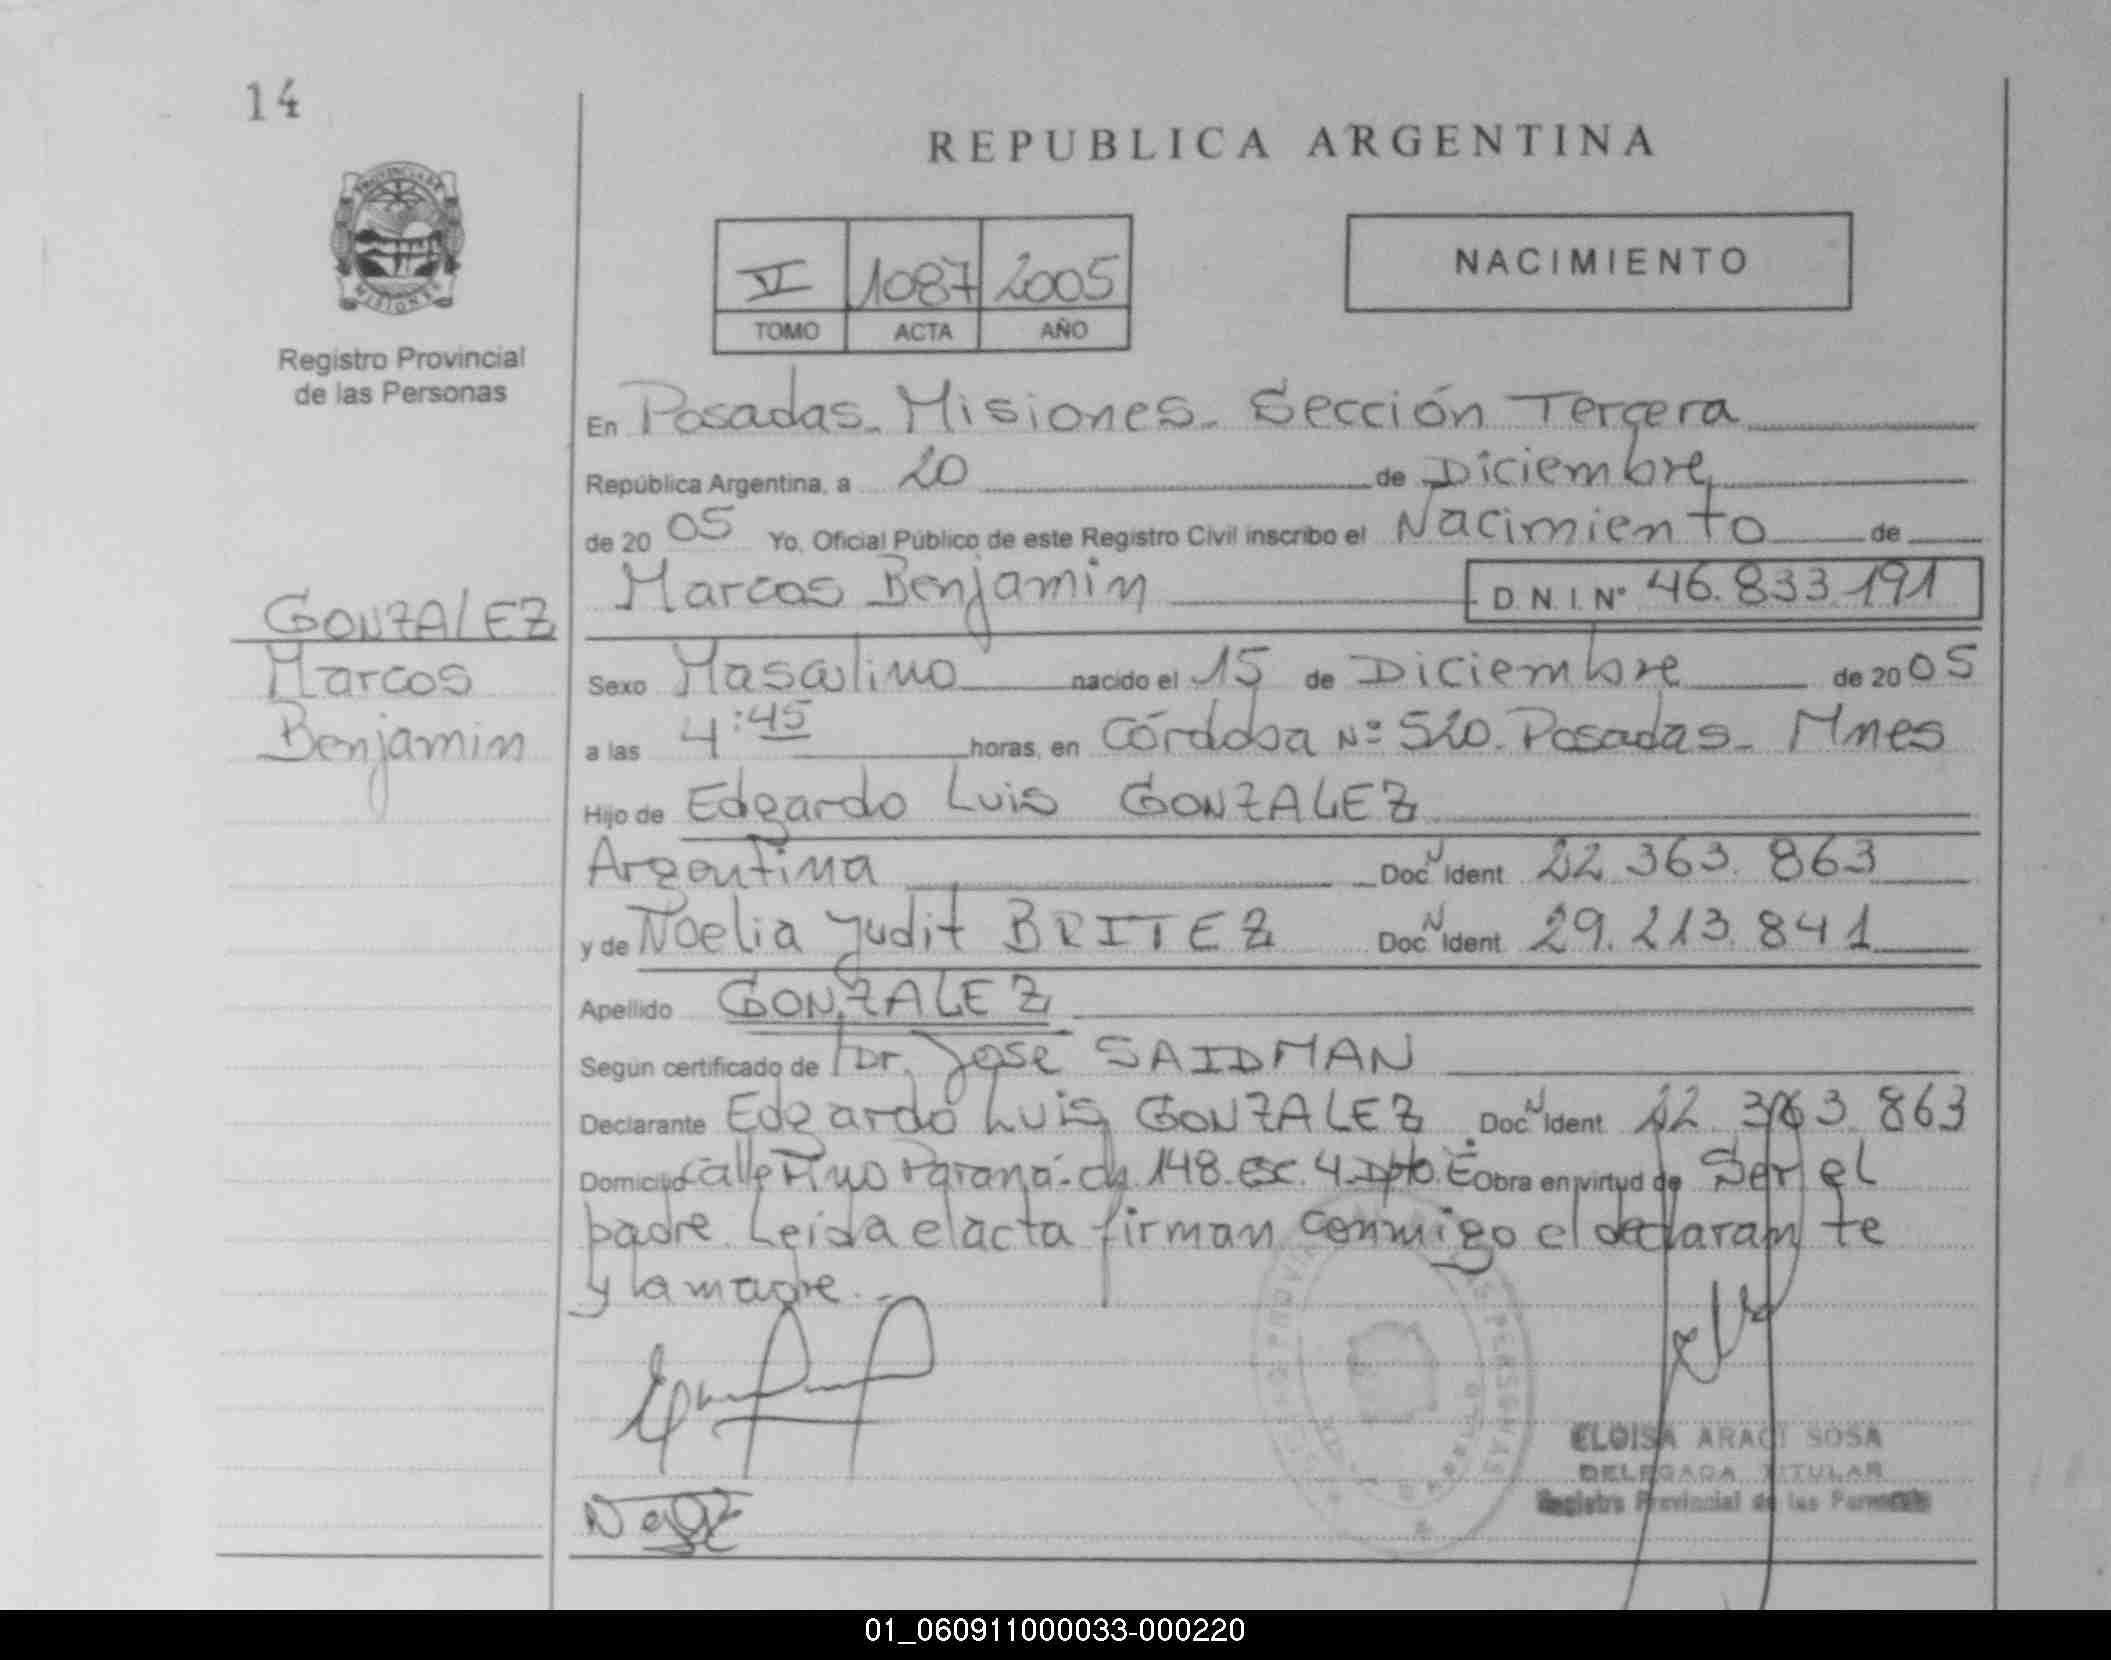 14
REPUBLICA ARGENTINA
PROVINCIA DE
MISIONES
Registro Provincial
de las Personas
VI 1087 2005
TOMO ACTA AÑO
NACIMIENTO
En Posadas - Misiones - Sección Tercera
República Argentina, a 20 de Diciembre
de 20 05 Yo, Oficial Público de este Registro Civil inscribo el Nacimiento de
Marcos Benjamin D.N.I. Nº 46.833.191
GONZALEZ
Marcos
Benjamin
Sexo Masculino nacido el 15 de Diciembre de 20 05
a las 4:45 horas, en Córdoba Nº 520. Posadas - Mnes
Hijo de Edgardo Luis GONZALEZ
Argentina Doc N Ident 22.363.863
y de Noelia Judit BRITEZ Doc N Ident 29.213.841
Apellido GONZALEZ
Según certificado de Dr. José SAIDMAN
Declarante Edgardo Luis GONZALEZ. Doc N Ident 22.363.863
Domicilio calle Pino Paraná - ch 148. esc. 4. Dpto. E Obra en virtud de Ser el
padre. Leida el acta firman conmigo el declarante
y la madre.-
ELOISA ARACI SOSA
DELEGADA TITULAR
Registro Provincial de las Personas
01_060911000033-000220